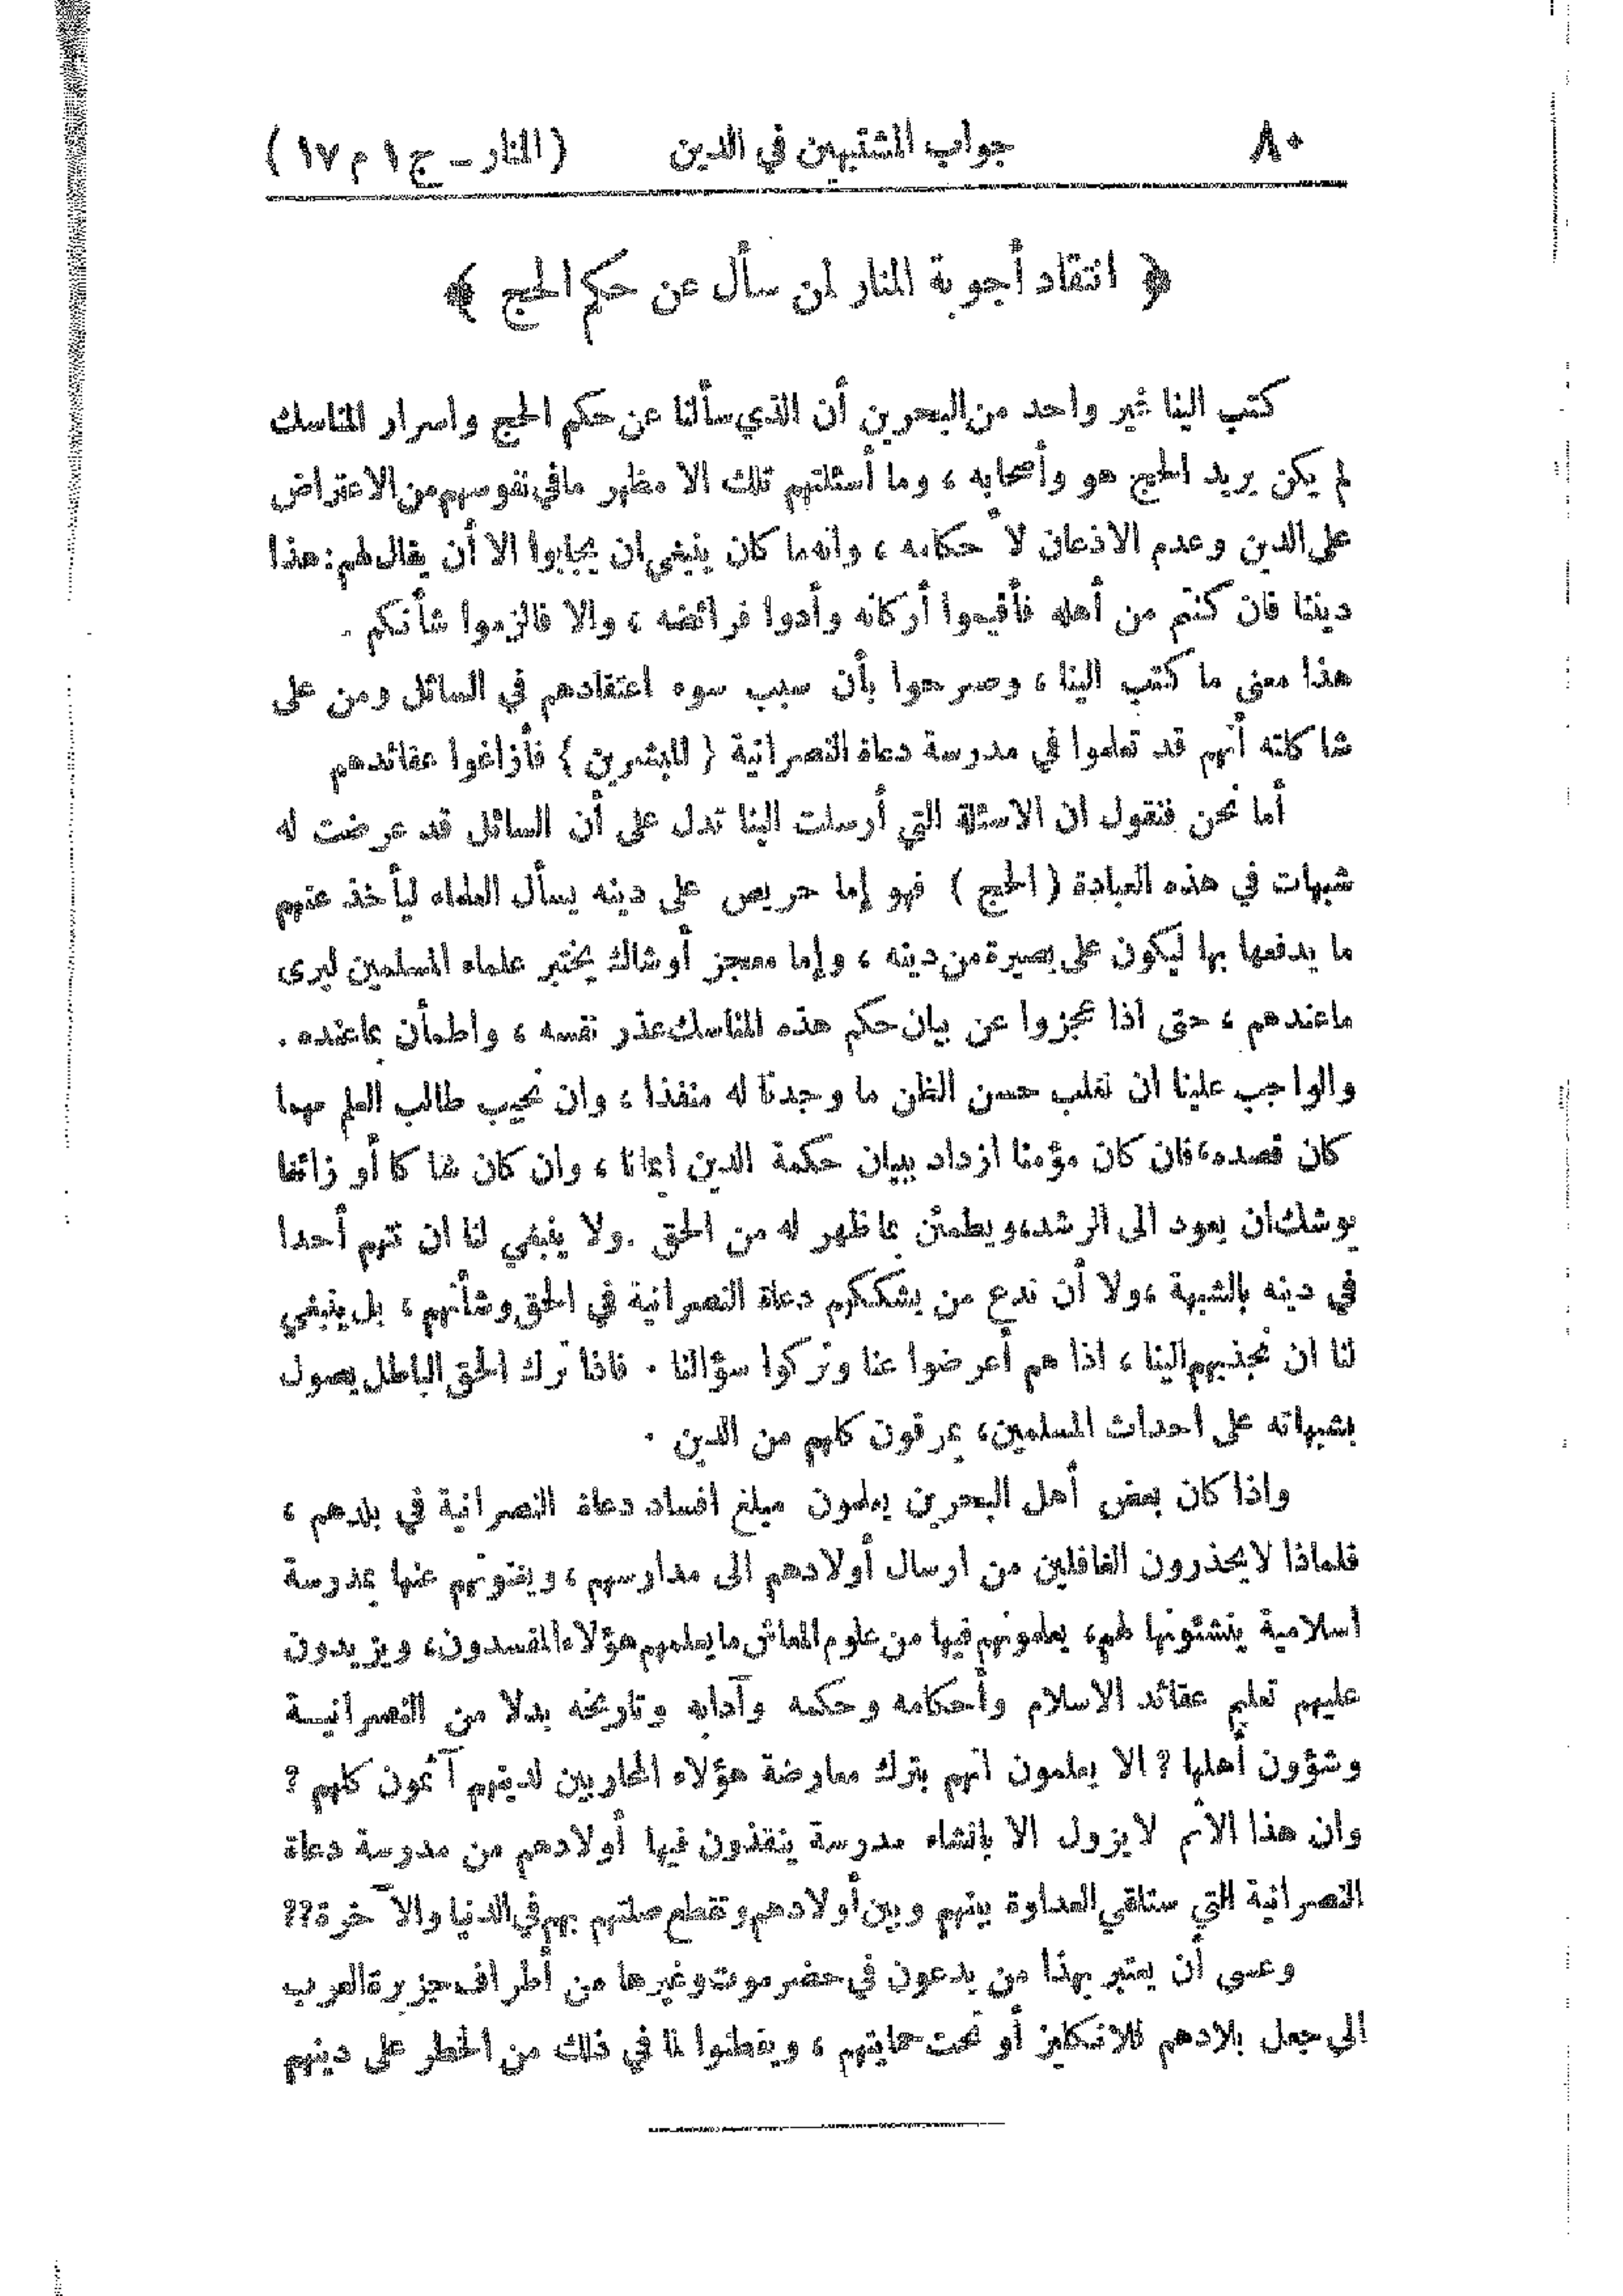 ٨٠ جواب المشتبهين في الدين (المنار ــ ج ١ م ١٧)
﴿ انتقاد أجوبة المنار لمن سأل عن حكم الحج ﴾
كتب الينا غير واحد من البحرين أن الذي سألنا عن حكم الحج واسرار المناسك
لم يكن يريد الحج هو وأصحابه ، وما أسئلتهم تلك الا مظهر ما في نفوسهم من الاعتراض
على الدين وعدم الاذعان لأحكامه ، وانه ما كان ينبغي ان يجابوا الا أن يقال لهم : هذا
ديننا فان كنتم من أهله فأقيموا أركانه وأدوا فرائضه ، والا فالزموا شأنكم .
هذا معنى ما كتب الينا ، وصرحوا بأن سبب سوء اعتقادهم في السائل ومن على
شاكلته أنهم قد تعلموا في مدرسة دعاة النصرانية ( المبشرين ) فأزاغوا عقائدهم
أما نحن فنقول ان الاسئلة التي أرسلت الينا تدل على أن السائل قد عرضت له
شبهات في هذه العبادة ( الحج ) فهو إما حريص على دينه يسأل العلماء ليأخذ عنهم
ما يدفعها بها ليكون على بصيرة من دينه ، وإما معجز أو شاك يختبر علماء المسلمين ليرى
ما عندهم ، حتى اذا عجزوا عن بيان حكم هذه المناسك عذر نفسه ، واطمأن بما عنده .
والواجب علينا ان نغلب حسن الظن ما وجدنا له منفذا ، وان نجيب طالب العلم مهما
كان قصده ، فان كان مؤمنا ازداد ببيان حكمة الدين ايمانا ، وان كان شاكا أو زائغا
يوشك ان يعود الى الرشد ، ويطمئن بما ظهر له من الحق . ولا ينبغي لنا ان نتهم أحدا
في دينه بالشبهة ، ولا أن ندع من يشككهم دعاة النصرانية في الحق وشأنهم ، بل ينبغي
لنا ان نجذبهم الينا ، اذا هم أعرضوا عنا وتركوا سؤالنا . فاذا ترك الحق الباطل يصول
بشبهاته على احداث المسلمين ، يمرقون كلهم من الدين .
واذا كان بعض أهل البحرين يعلمون مبلغ افساد دعاة النصرانية في بلدهم ،
فلماذا لا يحذرون الغافلين من ارسال أولادهم الى مدارسهم ، ويغنونهم عنها بمدرسة
اسلامية ينشئونها لهم ، يعلمونهم فيها من علوم المعاش ما يعلمهم هؤلاء المفسدون ، ويزيدون
عليهم تعليم عقائد الاسلام وأحكامه وحكمه وآدابه وتاريخه بدلا من النصرانيــة
وشؤون أهلها ? الا يعلمون انهم بترك معارضة هؤلاء المحاربين لدينهم آثمون كلهم ?
وان هذا الاثم لا يزول الا بانشاء مدرسة ينقذون فيها أولادهم من مدرسة دعاة
النصرانية التي ستلقي العداوة بينهم وبين أولادهم وتقطع صلتهم بهم في الدنيا والآخرة ??
وعسى أن يعتبر بهذا من يدعون في حضرموت وغيرها من أطراف جزيرة العرب
الى جعل بلادهم للانكليز أو تحت حمايتهم ، ويفطنوا لما في ذلك من الخطر على دينهم